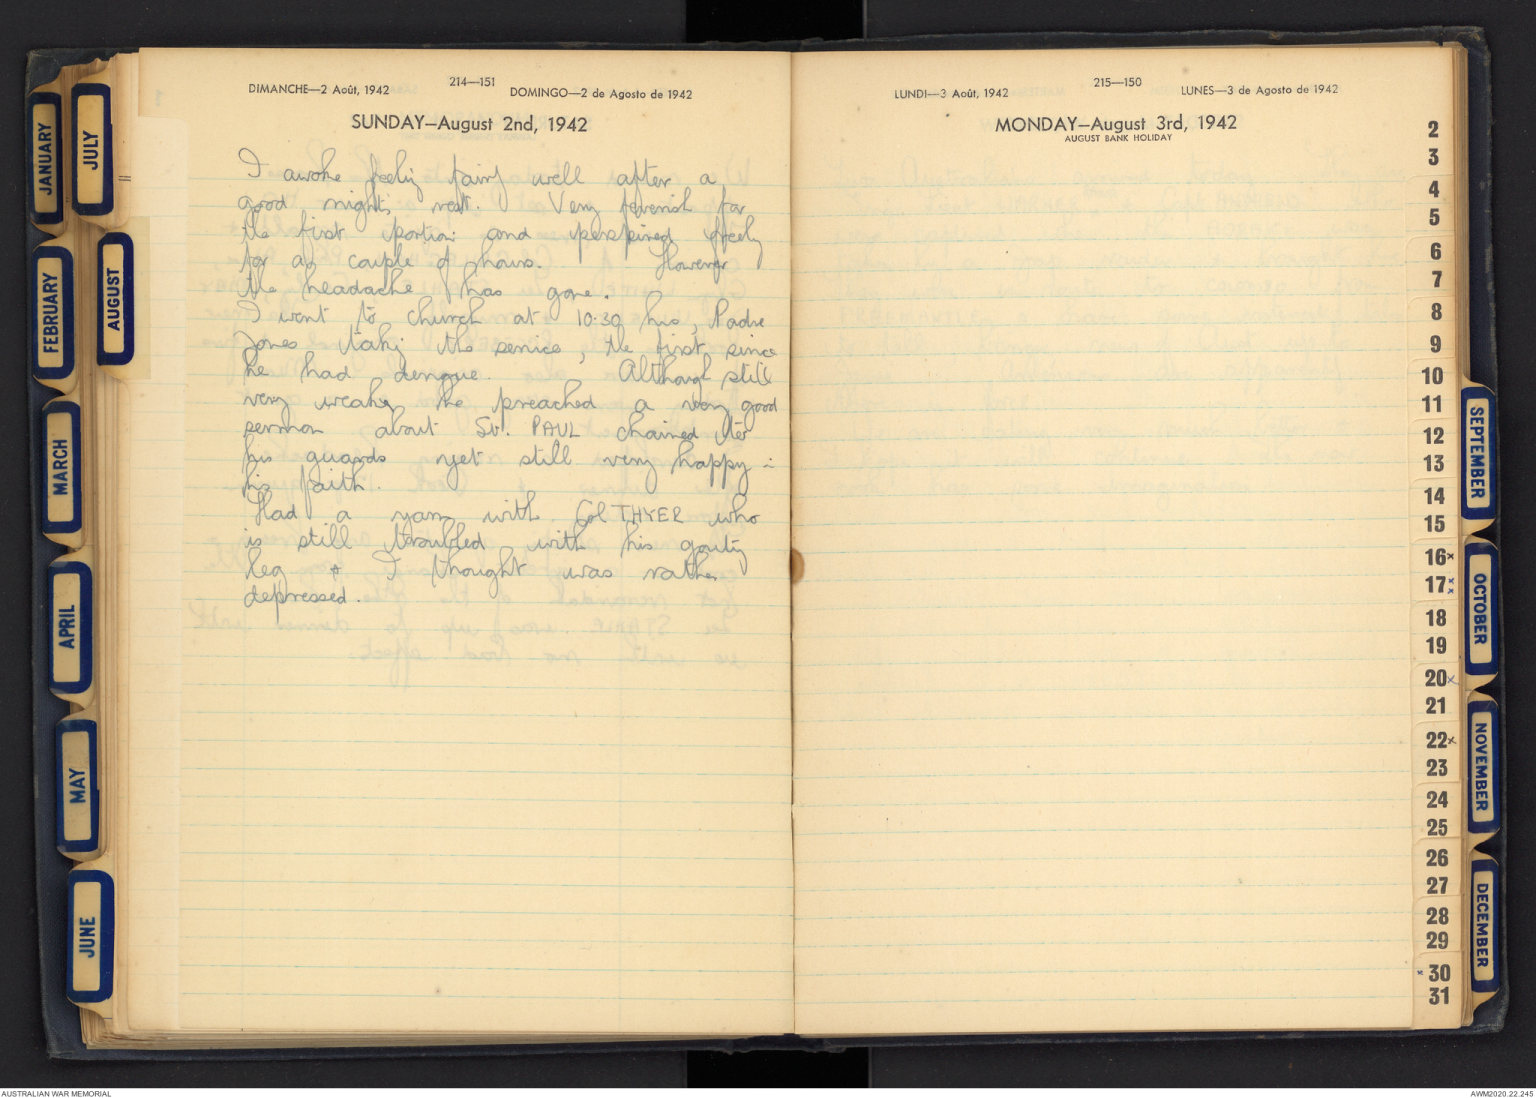 DIMANCHE—2 Août, 1942
214—151
DOMINGO—2 de Agosto de 1942
SUNDAY—August 2nd, 1942
I awoke feeling fairly well after a
good night's rest. Very feverish for
the first portion and perspired freely
for a couple of hours. However
the headache has gone.
I went to church at 10.30 hrs, Padre
Jones taking the service, the first since
he had dengue. Although still
very weak, he preached a very good
sermon about St. PAUL chained to
his guards yet still very happy in
his faith.
Had a yarn with Col THYER who
is still troubled with his gouty
leg & I thought was rather
depressed.
LUNDI—3 Août, 1942
215—150
LUNES—3 de Agosto de 1942
MONDAY—August 3rd, 1942
AUGUST BANK HOLIDAY
JANUARY
FEBRUARY
MARCH
APRIL
MAY
JUNE
JULY
AUGUST
2
3
4
5
6
7
8
9
10
11
12
13
14
15
16x
17
18
19
20x
21
22x
23
24
25
26
27
28
29
30
31
SEPTEMBER
OCTOBER
NOVEMBER
DECEMBER
AUSTRALIAN WAR MEMORIAL
AWM2020.22.245